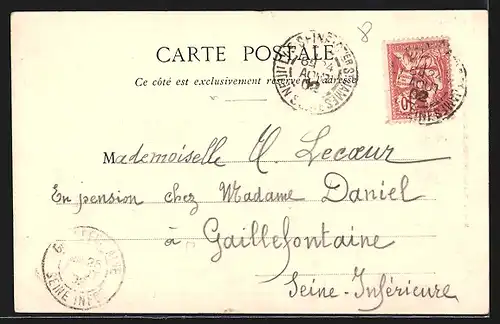 8
CARTE POSTALE
Ce côté est exclusivement réservé à l'adresse
Mademoiselle H. Lecœur
En pension chez Madame Daniel
à Gaillefontaine
Seine-Inférieure
SEINE INFRE